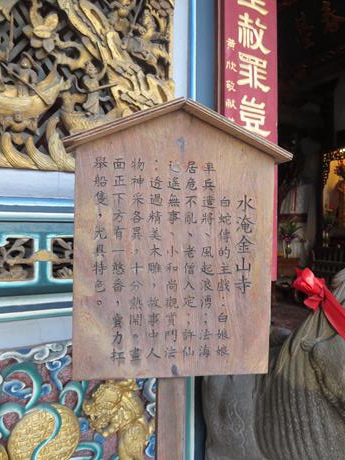 赦罪豈
水淹金山寺
白蛇傳的主戲：白娘娘
率兵遣將、風起浪湧；法海
居危不亂、老僧入定；許仙
逍遙無事、小和尚觀賞鬥法
：透過精美木雕，故事中人
物神采各異，十分熱鬧。畫
面正下方有一憨番，賣力扛
舉船隻，尤具特色。